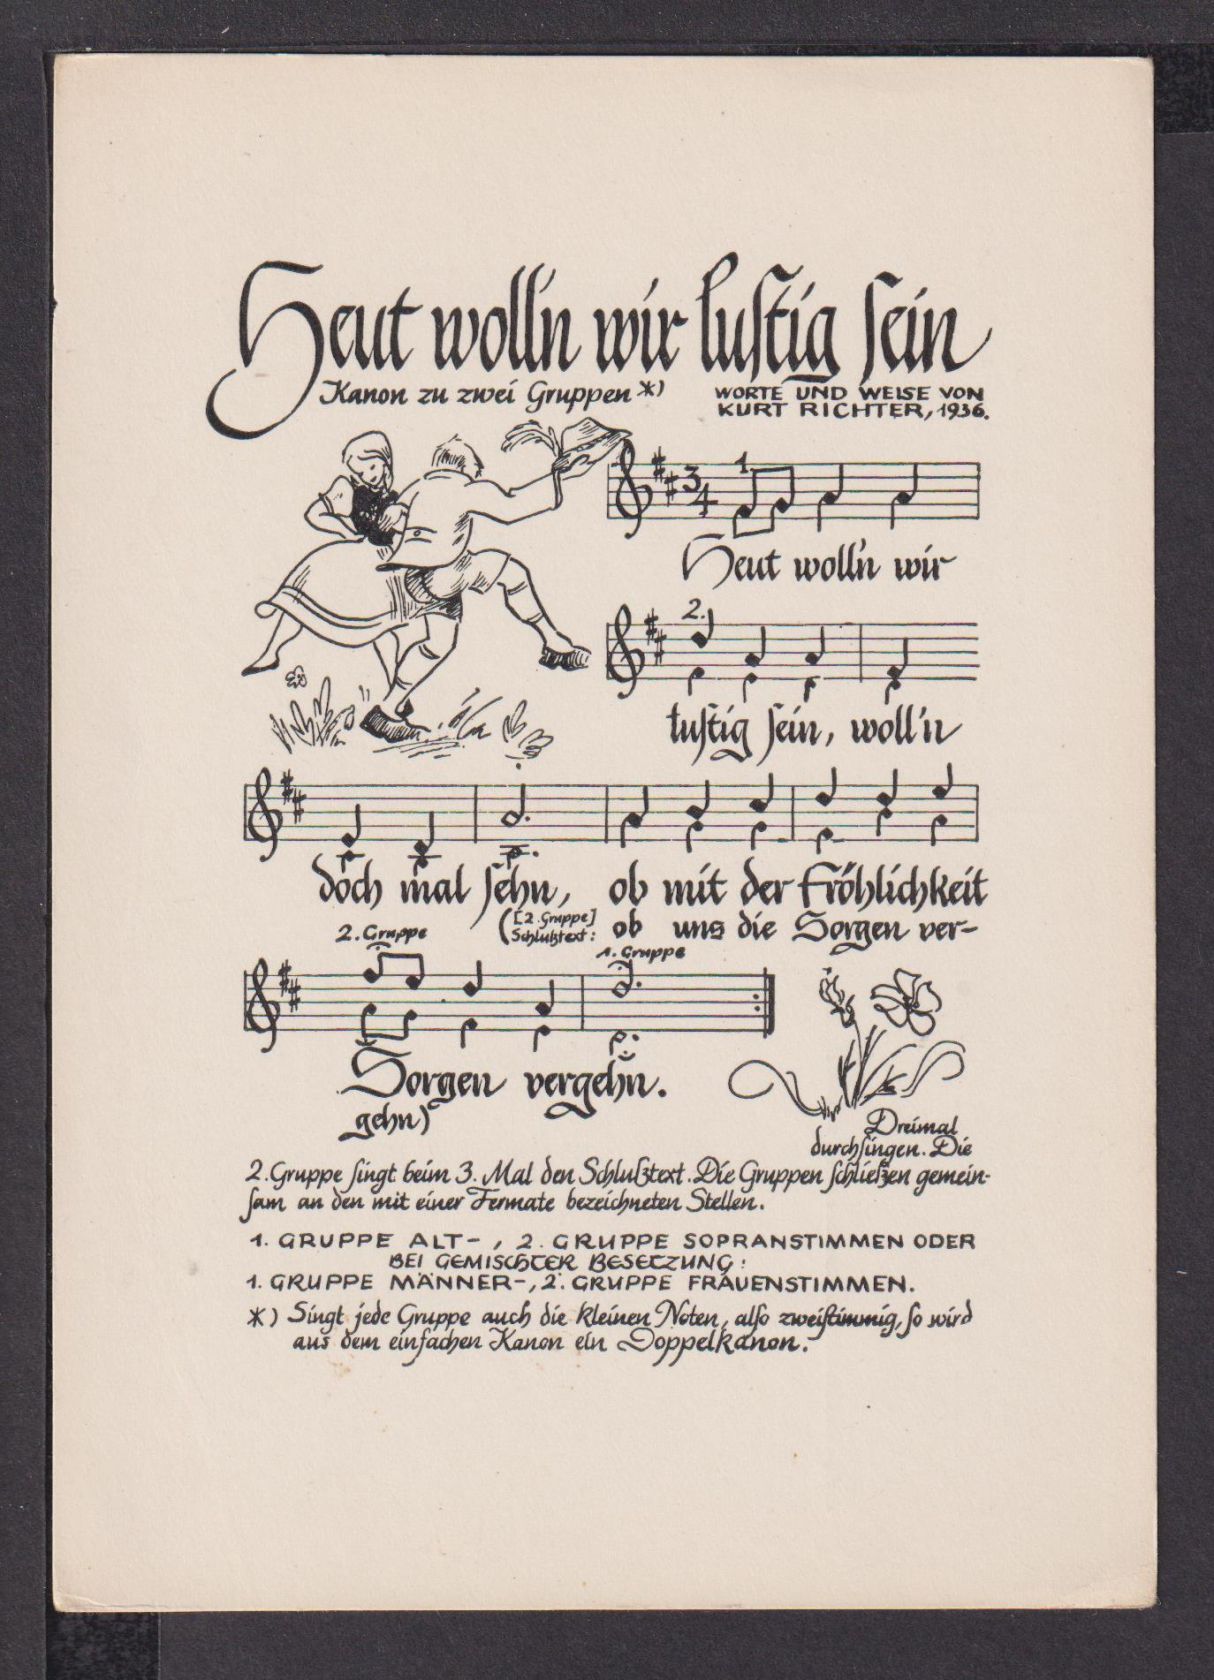 Heut woll'n wir lustig sein
Kanon zu zwei Gruppen *)
WORTE UND WEISE VON
KURT RICHTER, 1936.
3/4 1.
Heut woll'n wir
2.
lustig sein, woll'n
doch mal sehn, ob mit der Fröhlichkeit
([2. Gruppe] Schlußtext: ob uns die Sorgen ver-
2. Gruppe
1. Gruppe
Sorgen vergehn.
gehn)
Dreimal
durchsingen. Die
2. Gruppe singt beim 3. Mal den Schlußtext. Die Gruppen schließen gemein-
sam an den mit einer Fermate bezeichneten Stellen.
1. GRUPPE ALT-, 2. GRUPPE SOPRANSTIMMEN ODER
BEI GEMISCHTER BESETZUNG:
1. GRUPPE MÄNNER-, 2. GRUPPE FRAUENSTIMMEN.
*) Singt jede Gruppe auch die kleinen Noten, also zweistimmig, so wird
aus dem einfachen Kanon ein Doppelkanon.